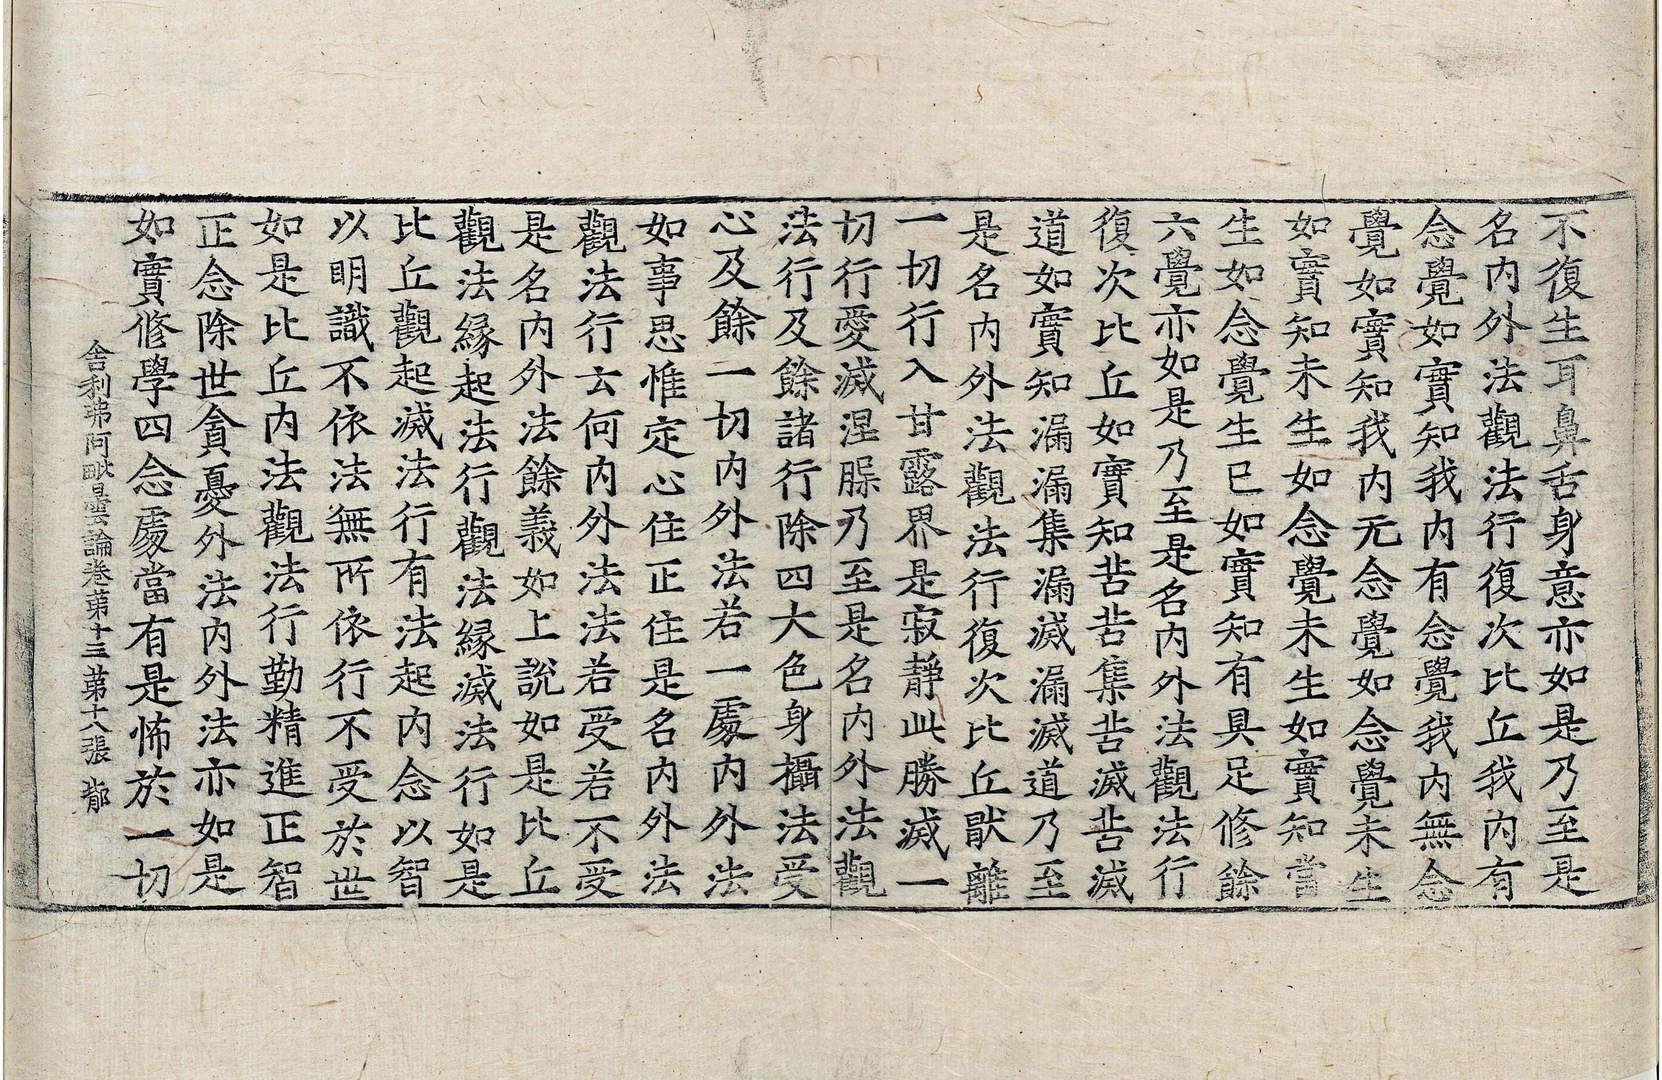 不復生耳鼻舌身意亦如是乃至是
名内外法觀法行復次比丘我内有
念覺如實知我内有念覺我内無念
覺如實知我内无念覺如念覺未生
如實知未生如念覺未生如實知當
生如念覺生已如實知有具足修餘
六覺亦如是乃至是名内外法觀法行
復次比丘如實知苦苦集苦滅苦滅
道如實知漏漏集漏滅漏滅道乃至
是名内外法觀法行復次比丘猒離
一切行入甘露界是寂靜此勝滅一
切行愛滅涅槃乃至是名内外法觀
法行及餘諸行除四大色身攝法受
心及餘一切内外法若一處内外法
如事思惟定心住正住是名内外法
觀法行云何内外法法若受若不受
是名内外法餘義如上說如是比丘
觀法緣起法行觀法緣滅法行如是
比丘觀起滅法行有法起内念以智
以明識不依法無所依行不受於世
如是比丘内法觀法行勤精進正智
正念除世貪憂外法内外法亦如是
如實修學四念處當有是怖於一切
舍利弗阿毗曇論卷第十三 第十八張